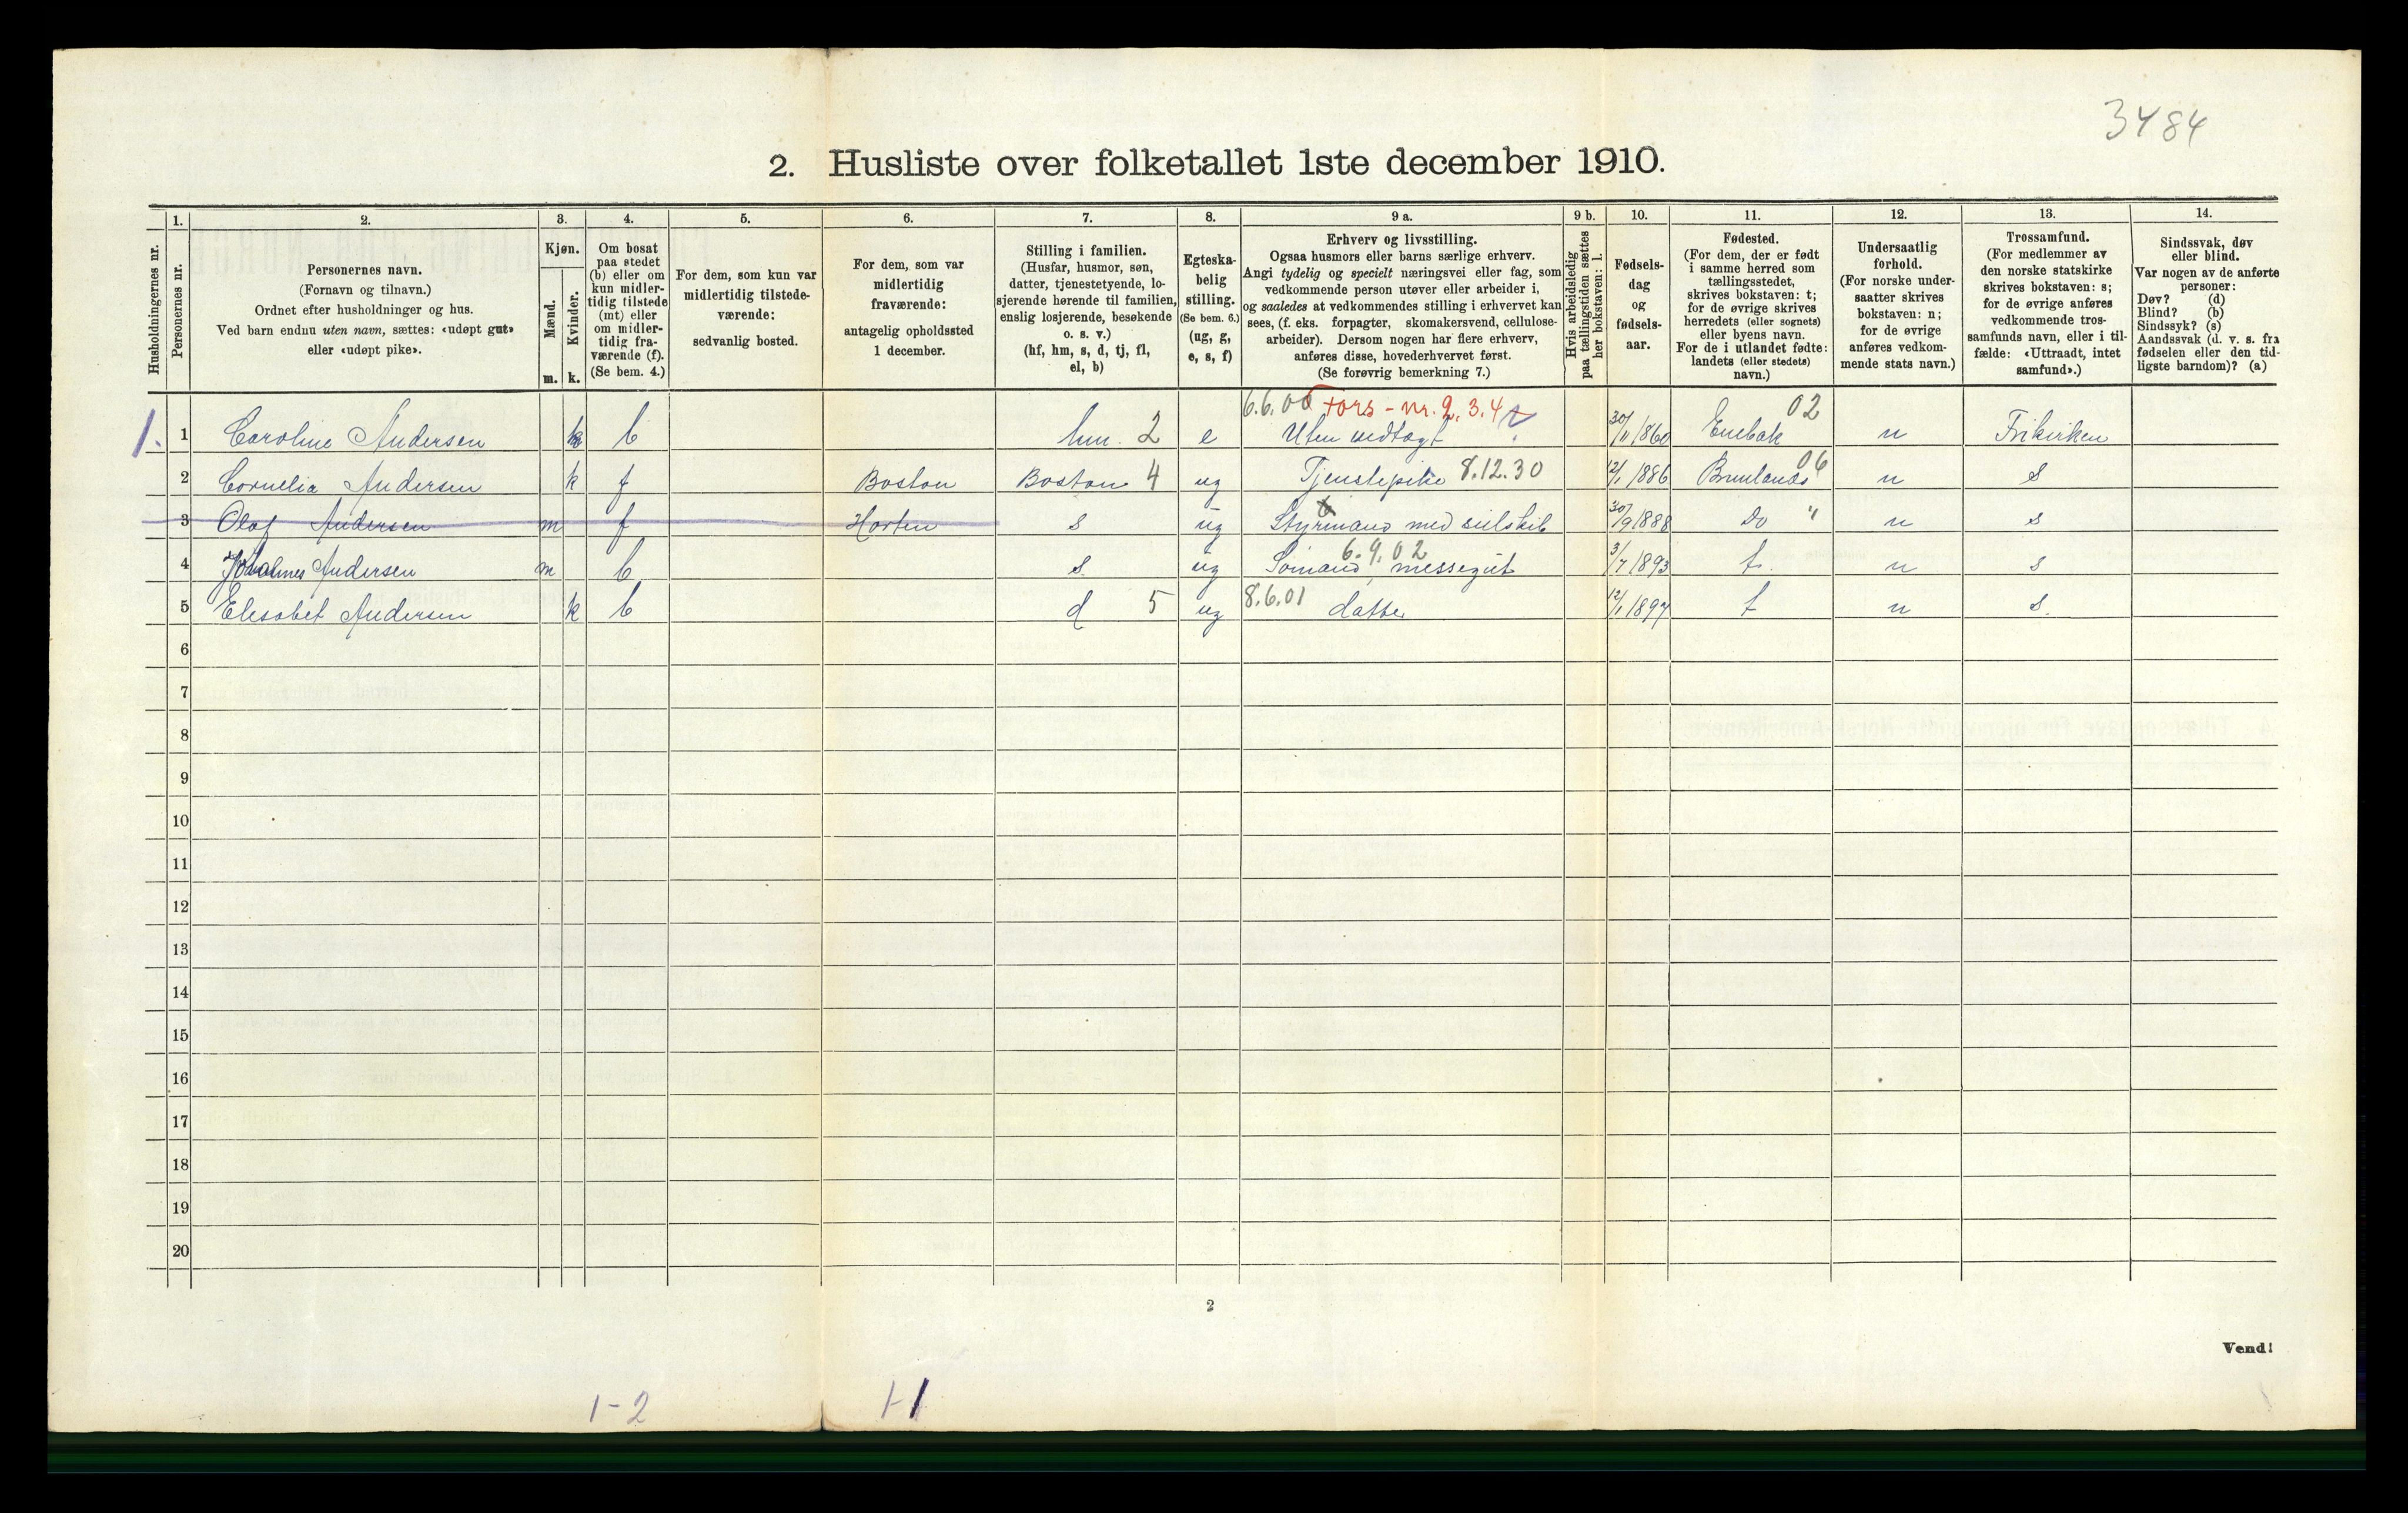 3484
2. Husliste over folketallet 1ste december 1910.
Husholdningernes nr.
1.
Personernes nr.
2.
Personernes navn.
(Fornavn og tilnavn.)
Ordnet efter husholdninger og hus.
Ved barn endnu uten navn, sættes: «udøpt gut»
eller «udøpt pike».
3.
Kjøn.
Mænd.
Kvinder.
m. k.
4.
Om bosat
paa stedet
(b) eller om
kun midler-
tidig tilstede
(mt) eller
om midler-
tidig fra-
værende (f).
(Se bem. 4.)
5.
For dem, som kun var
midlertidig tilstede-
værende:
sedvanlig bosted.
6.
For dem, som var
midlertidig
fraværende:
antagelig opholdssted
1 december.
7.
Stilling i familien.
(Husfar, husmor, søn,
datter, tjenestetyende, lo-
sjerende hørende til familien,
enslig losjerende, besøkende
o. s. v.)
(hf, hm, s, d, tj, fl,
el, b)
8.
Egteska-
belig
stilling.
(Se bem. 6.)
(ug, g,
e, s, f)
9 a.
Erhverv og livsstilling.
Ogsaa husmors eller barns særlige erhverv.
Angi tydelig og specielt næringsvei eller fag, som
vedkommende person utøver eller arbeider i,
og saaledes at vedkommendes stilling i erhvervet kan
sees, (f. eks. forpagter, skomakersvend, cellulose-
arbeider). Dersom nogen har flere erhverv,
anføres disse, hovederhvervet først.
(Se forøvrig bemerkning 7.)
9 b.
Hvis arbeidsledig
paa tællingstiden sættes
her bokstaven: l.
10.
Fødsels-
dag
og
fødsels-
aar.
11.
Fødested.
(For dem, der er født
i samme herred som
tællingsstedet,
skrives bokstaven: t;
for de øvrige skrives
herredets (eller sognets)
eller byens navn.
For de i utlandet fødte:
landets (eller stedets)
navn.)
12.
Undersaatlig
forhold.
(For norske under-
saatter skrives
bokstaven: n;
for de øvrige
anføres vedkom-
mende stats navn.)
13.
Trossamfund.
(For medlemmer av
den norske statskirke
skrives bokstaven: s;
for de øvrige anføres
vedkommende tros-
samfunds navn, eller i til-
fælde: «Uttraadt, intet
samfund».)
14.
Sindssvak, døv
eller blind.
Var nogen av de anførte
personer:
Døv? (d)
Blind? (b)
Sindssyk? (s)
Aandssvak (d. v. s. fra
fødselen eller den tid-
ligste barndom)? (a)
6.6.00 Fors - nr. 2, 3. 4 02
1. 1 Caroline Andersen k b hm. 2 e Uten indtægt 30/11 1860 Enebak n Frikirken
2 Cornelia Andersen k f Boston Boston 4 ug Tjenstepike 8.12.30 12/1 1886 Brunlanes 06 n s
3 Olaf Andersen m f Horten s ug Styrmand med seilskib 30/9 1888 Do " n s
4 Johannes Andersen m b s ug Sømand, messegut 6.9.02 3/7 1893 t. n s
5 Elisabet Andersen k b d 5 ug 8.6.01 datter 12/1 1897 t n s.
6
7
8
9
10
11
12
13
14
15
16
17
18
19
20
2
Vend!
1-2 1-1